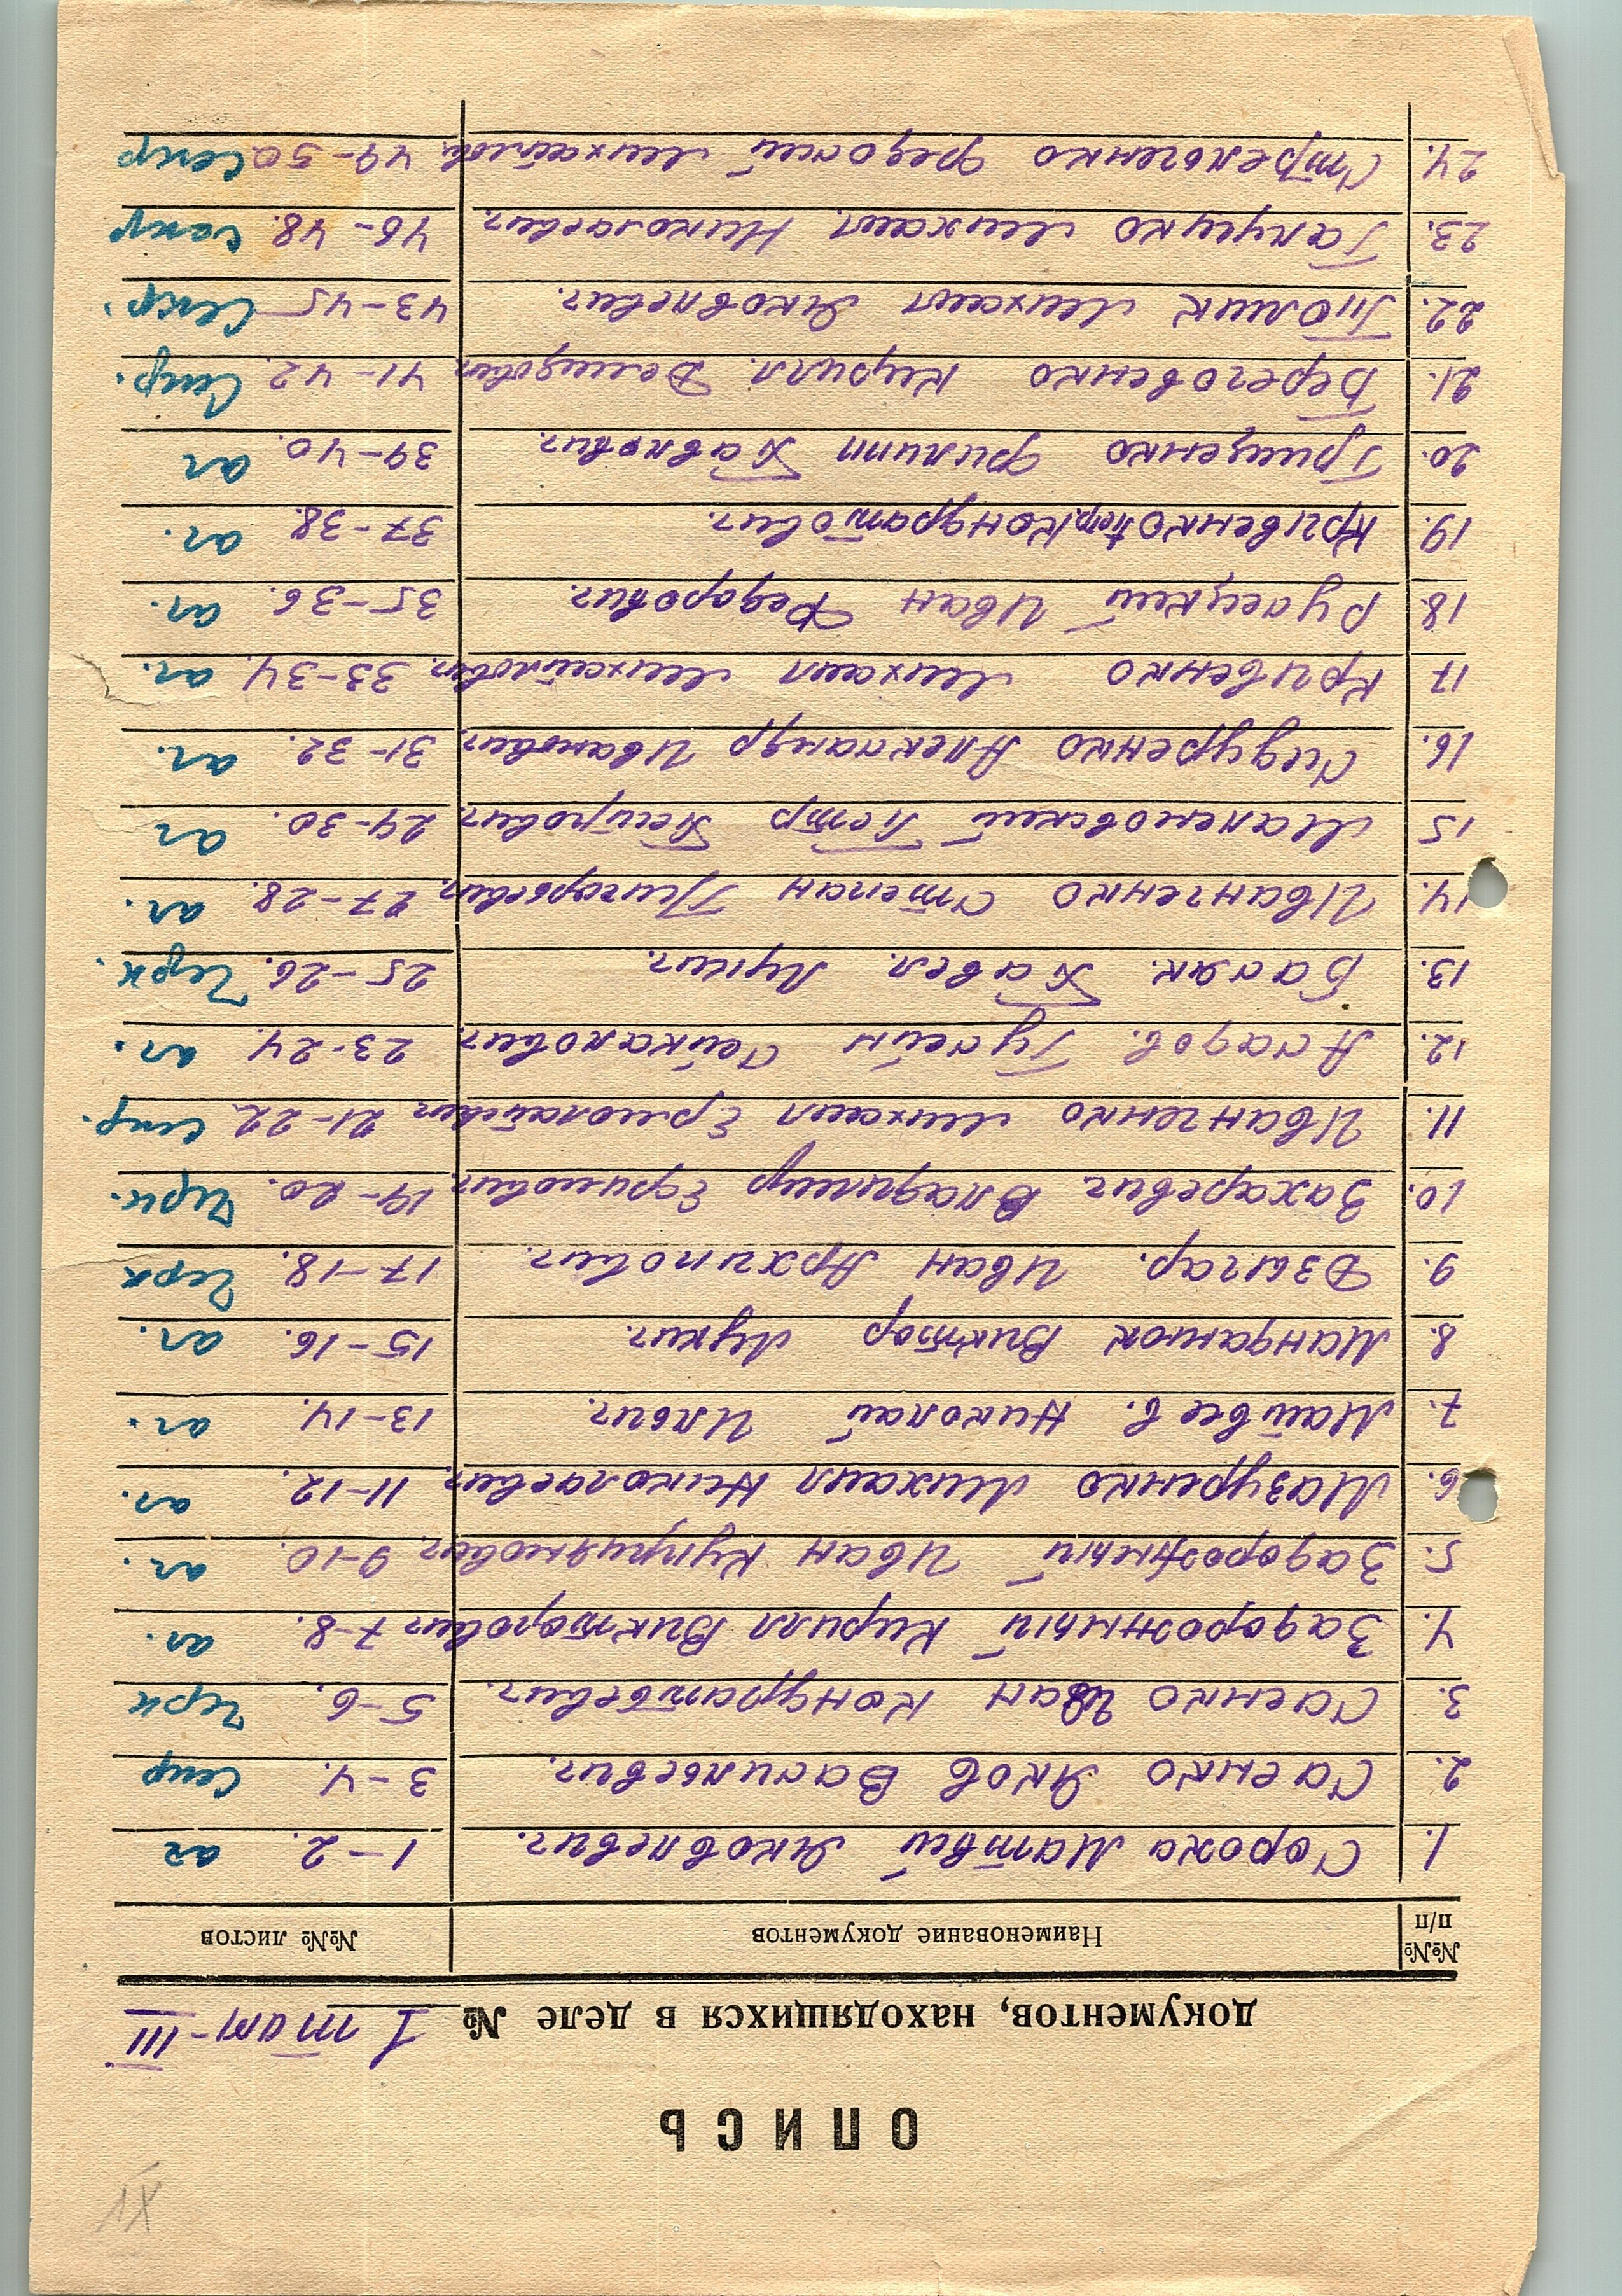 IX
ОПИСЬ
документов, находящихся в деле № 1 том-III
№№ п/п Наименование документов №№ листов
1. Сорока Матвей Яковлевич. 1-2. аг
2. Саенко Яков Васильевич. 3-4. Секр
3. Саенко Иван Кондратьевич. 5-6. Черк
4. Задорожный Кирилл Викторович 7-8. аг.
5. Задорожный Иван Куприянович. 9-10. аг.
6. Мазуренко Михаил Николаевич. 11-12. аг.
7. Матвеев. Николай Ильич. 13-14. аг.
8. Манданюк Виктор Лукич. 15-16. аг.
9. Дзыгар. Иван Архипович. 17-18. Черк
10. Захаревич Владимир Ефимович. 19-20. Черк.
11. Иванченко Михаил Ермолаевич. 21-22. Секр.
12. Асадов. Гусейн 23-24. аг.
13. Басяк. Павел. Лукич. 25-26. Черк.
14. Иванченко Степан Григорьевич. 27-28. аг.
15 Малековский Петр Петрович. 29-30. аг
16. Сидуренко Александр Иванович. 31-32. аг.
17 Кривенко Михаил Михайлович. 33-34. аг.
18. Русецкий Иван Федорович. 35-36. аг.
19. Кривенко Петр Кондратович. 37-38. аг.
20. Грищенко Филипп Павлович. 39-40. аг
21. Береговенко Кирилл. Демидович. 41-42. Секр.
22. Гномик Михаил Яковлевич. 43-45 Секр.
23. Галушко Михаил. Николаевич. 46-48. Секр
24. Стрельченко Федосий Михайлов. 49-50 Секр